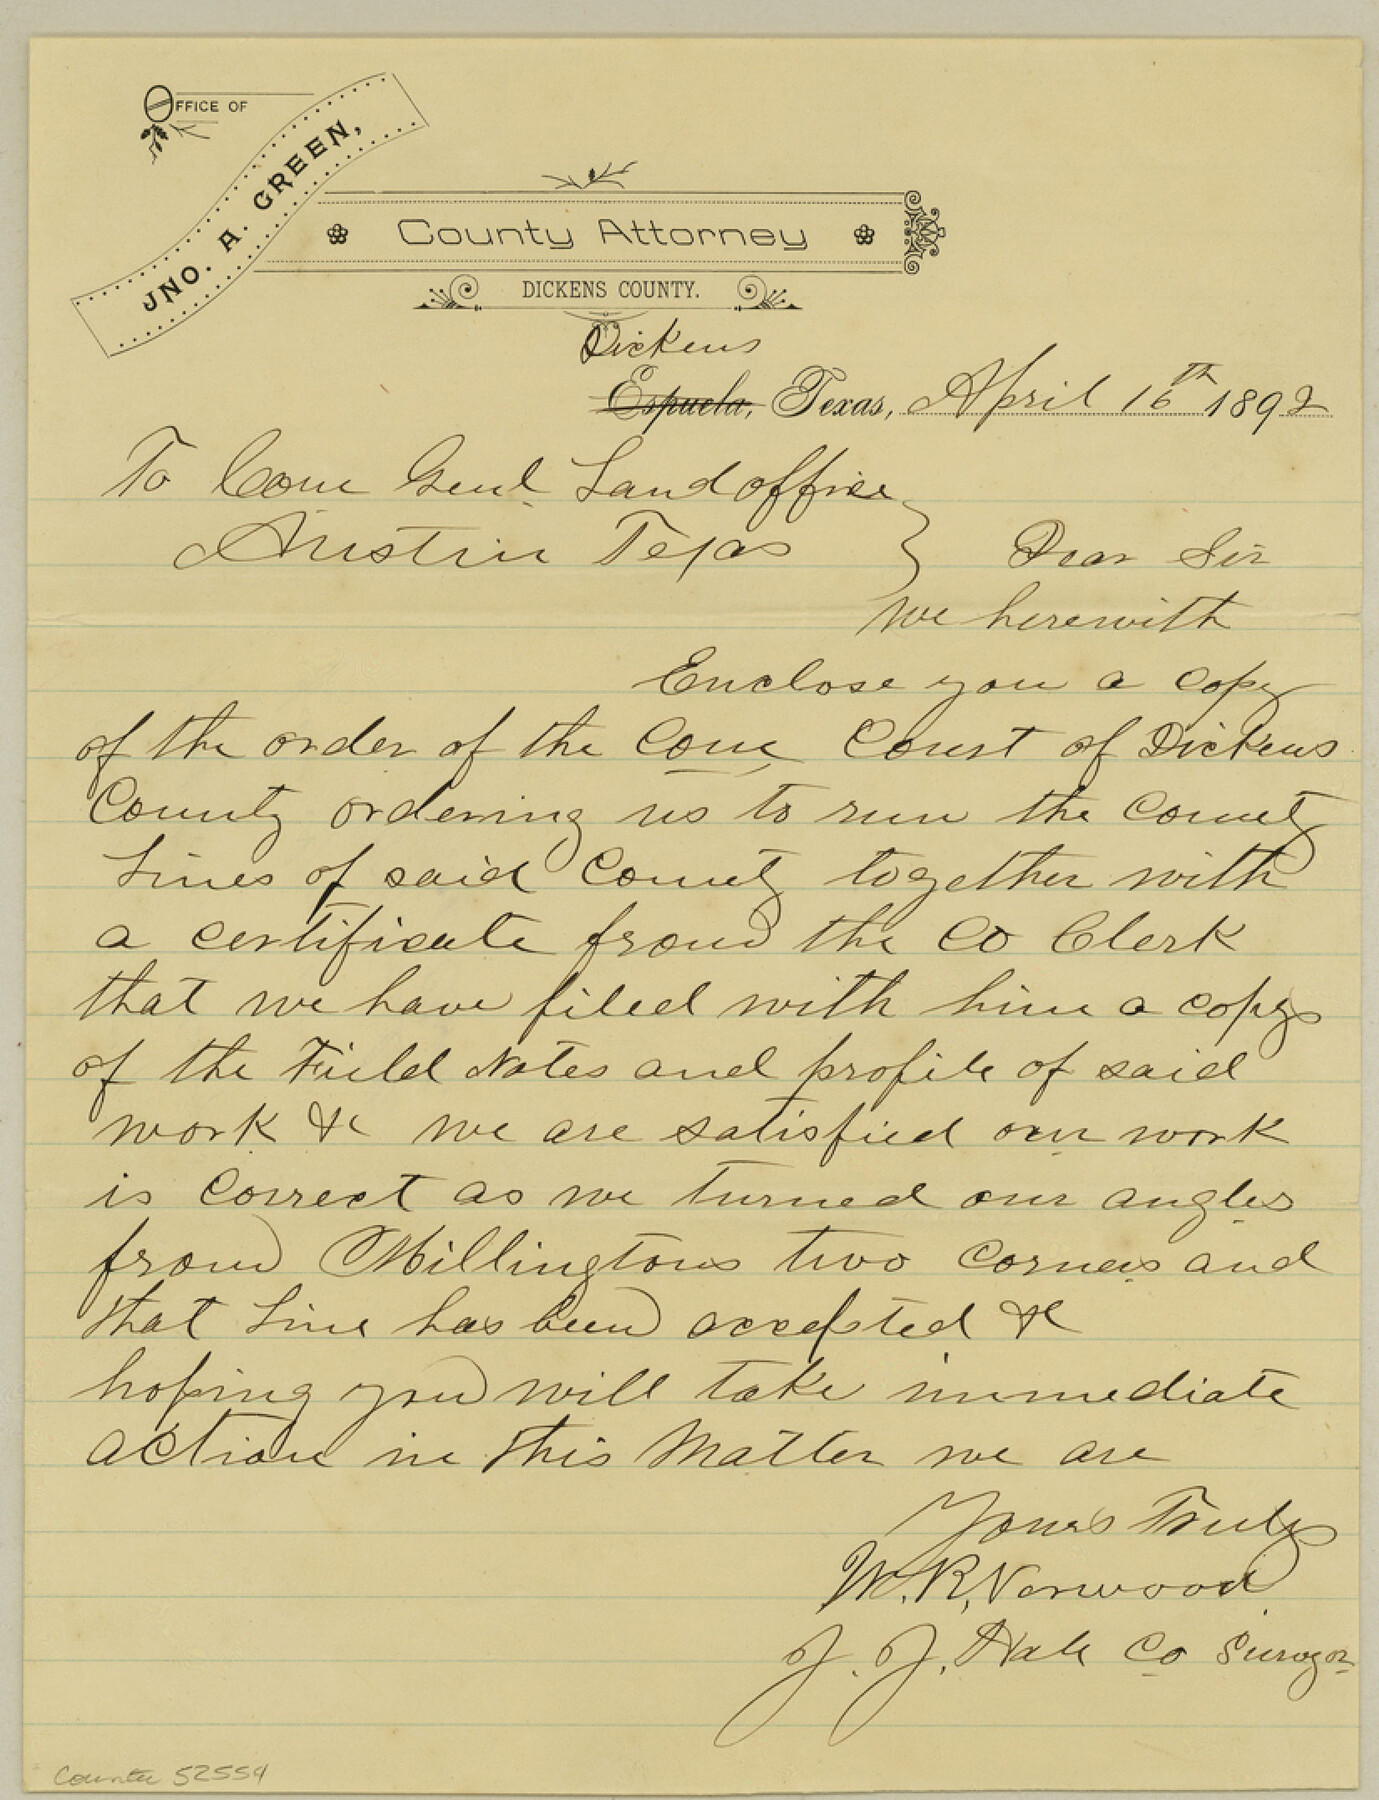 OFFICE OF
JNO. A. GREEN,
County Attorney
DICKENS COUNTY.
Dickens
Espuela, Texas, April 16th 1892
To Com Genl Land office
Austin Texas } Dear Sir
We herewith
Enclose you a copy
of the order of the Com Court of Dickens
County ordering us to run the County
Lines of said County together with
a certificate from the Co Clerk
that we have filed with him a copy
of the Field Notes and profile of said
work &c we are satisfied our work
is correct as we turned our angles
from Millingtons two corners and
that Line has been accepted &c
hoping you will take immediate
action in this Matter we are
Yours Truly
W. R. Norwood
J. J. Hale Co Surveyor
Counter 52554